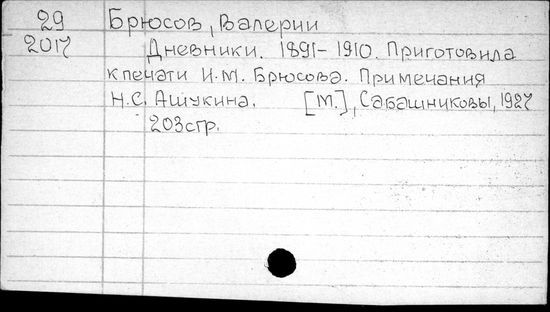 29 Брюсов, Валерии
2017 Дневники. 1891-1910. Приготовила
к печати И.М. Брюсова. Примечания
Н.С. Ашукина. [М.], Сабашниковы, 1927
203 стр.